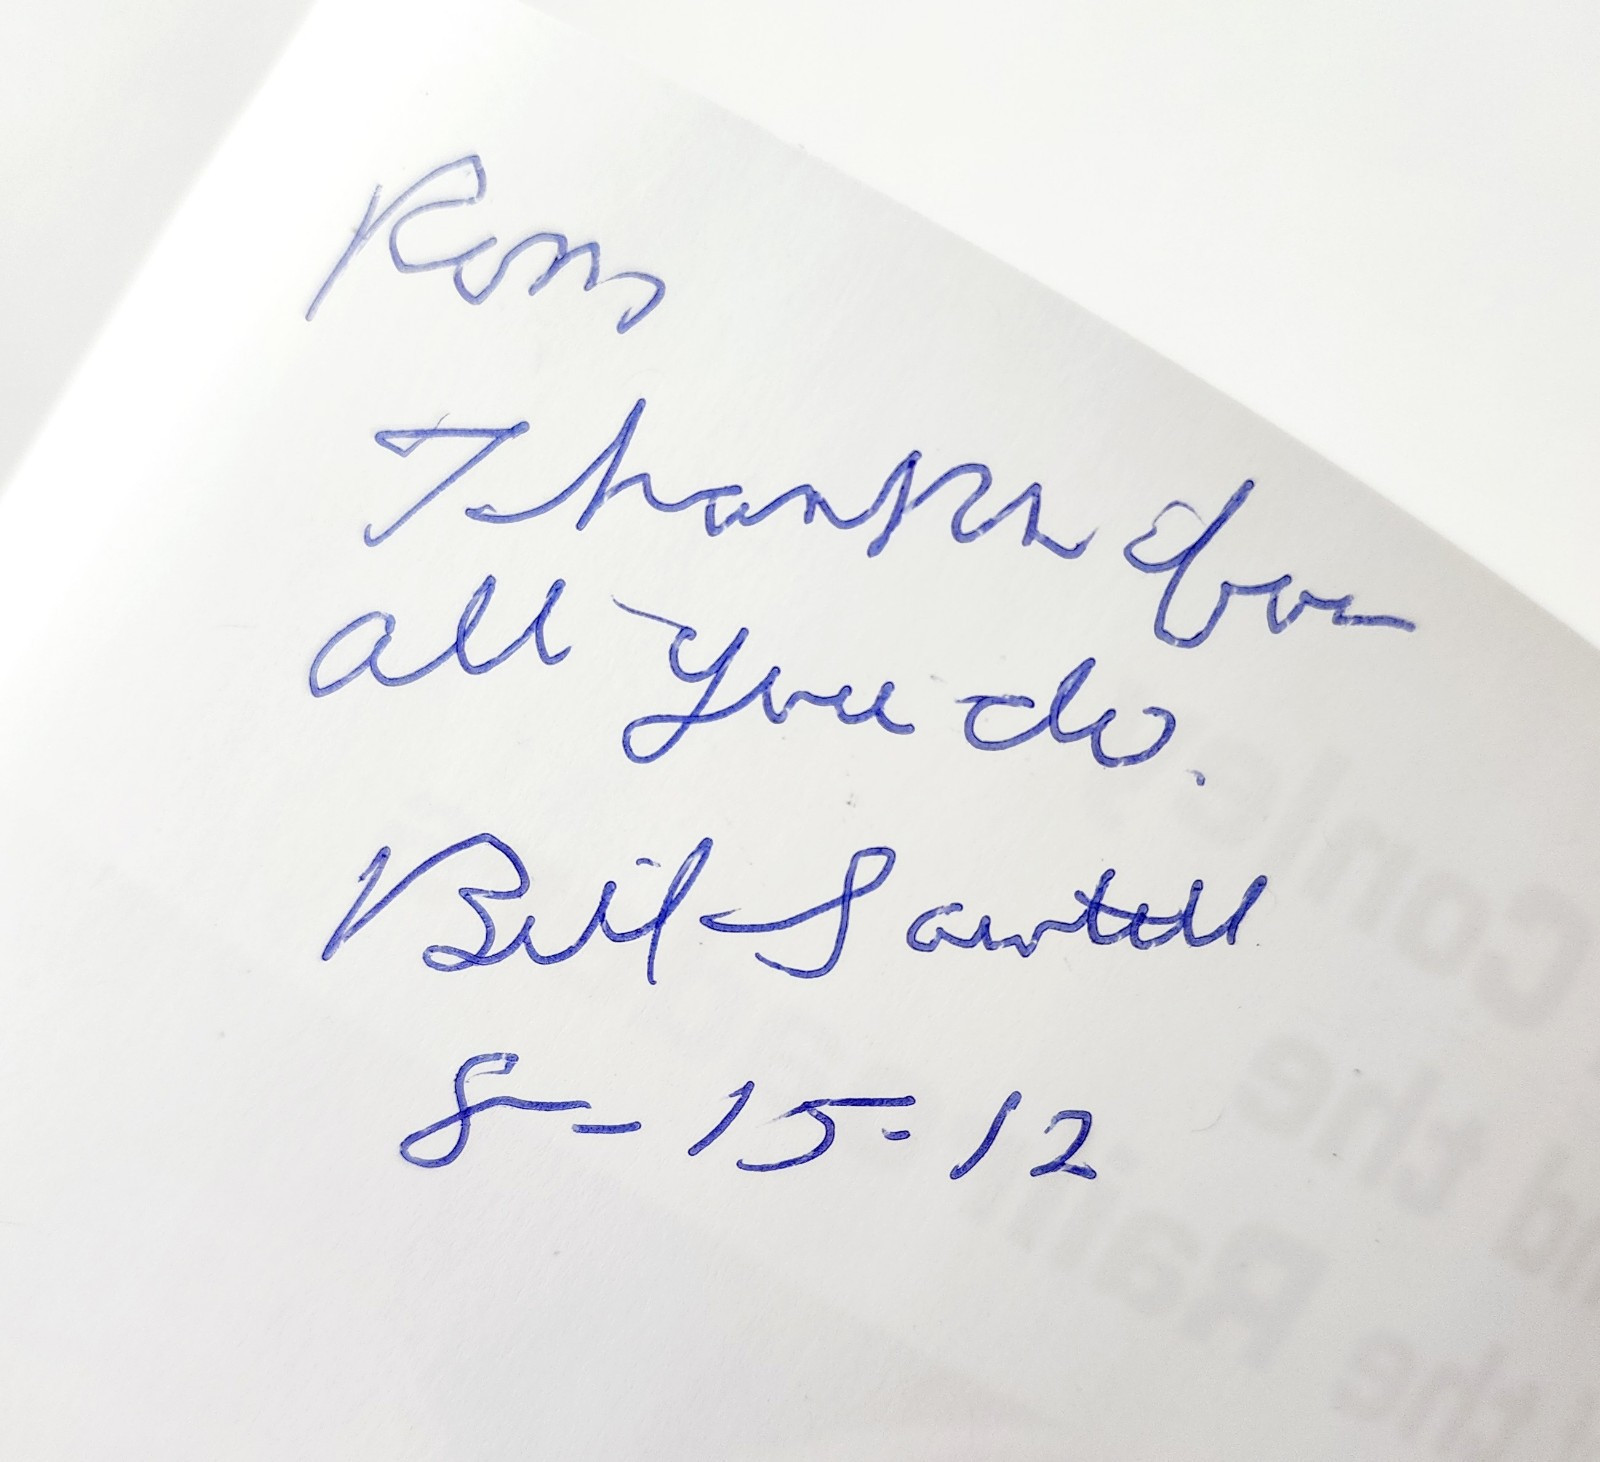 Ross
Thanks for
all you do.
Bill Sawtell
8-15-12